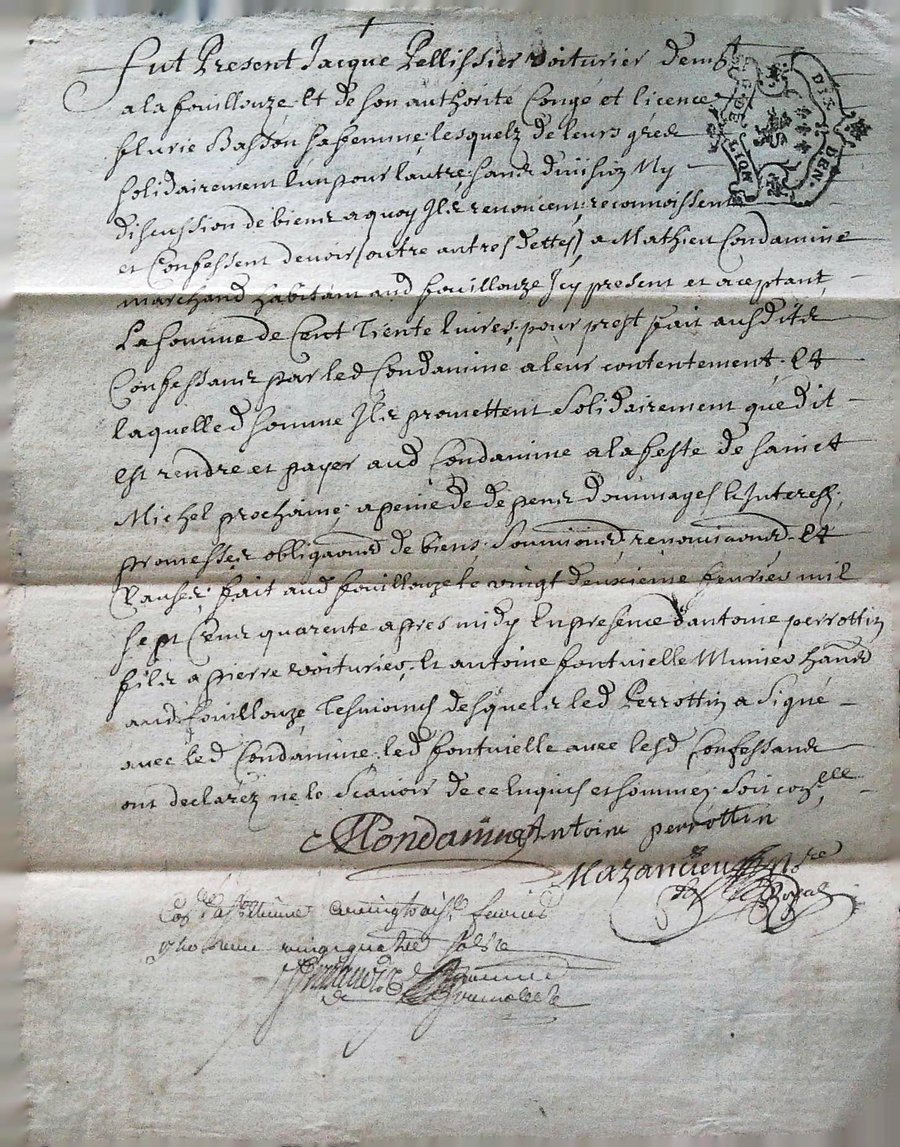 Fut Present Jacque Pellissier voiturier demt
a la fouillouze et de son authorité Congé et licence
flurie Basson sa femme, lesquelz de leurs gréz
solidairement lun pour lautre, sans division Ny
discussion de biens a quoy Ilz renoncent, reconnoissent
et Confessent devoir (outre autres dettes) a Mathieu Condamine
marchand habitant aud fouillouze Icy present et aceptant
La somme de Cent Trente livres, pour prest fait ausdits
Confessans par led Condamine a leur contentement, Et
laquelle d somme Ilz promettent solidairement que dit
est rendre et payer aud Condamine a la feste de sainct
Michel prochaine, a peine de depens dommages et Interest,
promesses obligaons de biens, soumions, renonciaons, Et
Clauses, fait aud fouillouze le vingt deuxieme fevrier mil
sept Cens quarente apres midy En presence d'antoine perrottin
fils a pierre voiturier, et antoine fontvielle Munier hans
aud fouillouze Tesmoins desquels led Perrottin a Signé
avec led Condamine, led fontvielle avec lesd Confessans
ont declarez ne le Scavoir de ce Enquis et sommez Soit conlle
MCondamine Antoine perrottin
Mazancieu Nre
Royal
fevrier
vingt quatre sols